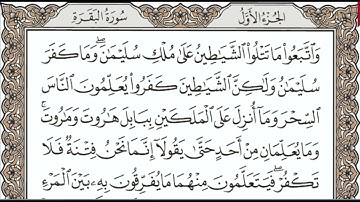 سُورَةُ البَقَرَةِ
الجُزْءُ الأَوَّلُ
وَاتَّبَعُوا۟ مَا تَتْلُوا۟ الشَّيَٰطِينُ عَلَىٰ مُلْكِ سُلَيْمَٰنَ ۖ وَمَا كَفَرَ
سُلَيْمَٰنُ وَلَٰكِنَّ الشَّيَٰطِينَ كَفَرُوا۟ يُعَلِّمُونَ النَّاسَ
السِّحْرَ وَمَا أُنزِلَ عَلَى الْمَلَكَيْنِ بِبَابِلَ هَٰرُوتَ وَمَٰرُوتَ ۚ
وَمَا يُعَلِّمَانِ مِنْ أَحَدٍ حَتَّىٰ يَقُولَا إِنَّمَا نَحْنُ فِتْنَةٌ فَلَا
تَكْفُرْ ۖ فَيَتَعَلَّمُونَ مِنْهُمَا مَا يُفَرِّقُونَ بِهِۦ بَيْنَ الْمَرْءِ